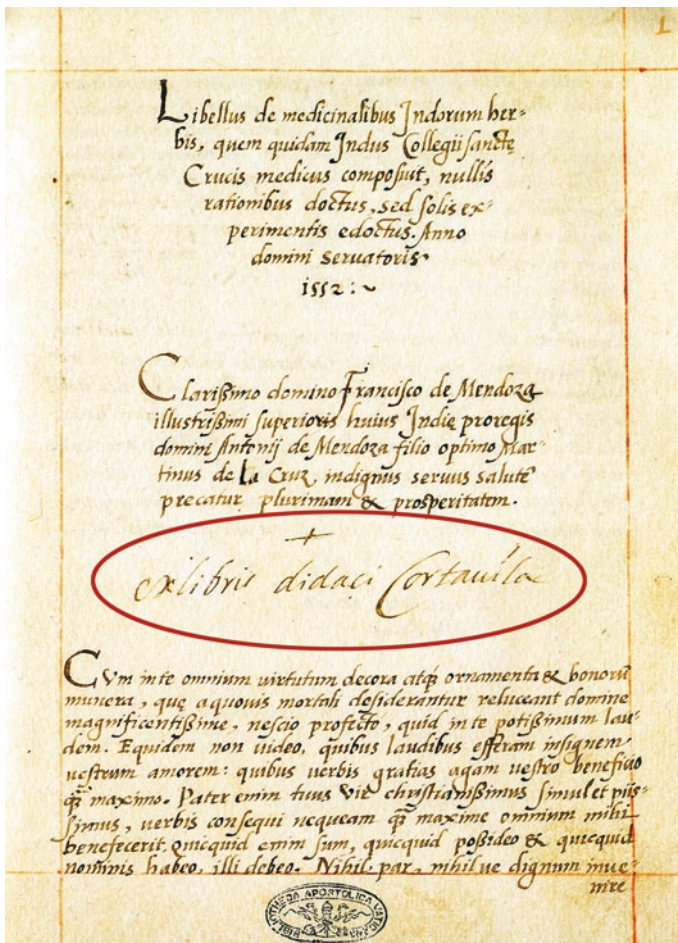 1
Libellus de medicinalibus Indorum her-
bis, quem quidam Indus Collegii sanctę
Crucis medicus composuit, nullis
rationibus doctus, sed solis ex-
perimentis edoctus. Anno
domini seruatoris
1552:~
Clarißimo domino Francisco de Mendoza
illustrißimi superioris huius Indię proregis
domini Antonij de Mendoza filio optimo Mar-
tinus de La Cruz indignus seruus salutē
precatur plurimam & prosperitatem.
+
ex libris didaci Cortauila
Cvm in te omnium uirtutum decora atq́ꝫ ornamenta & bonorū
munera, quę a quouis mortali desiderantur reluceant domine
magnificentißime, nescio profecto, quid in te potißimum lau-
dem. Equidem non uideo, quibus laudibus efferam insignem
uestrum amorem: quibus verbis gratias agam uestro beneficio
q̃ꝫ maximo. Pater enim tuus Vir christianißimus simul et piis-
simus, verbis consequi nequeam q̃ꝫ maxime omnium mihi
benefecerit, quicquid enim sum, quicquid poßideo & quicquid
nominis habeo, illi debeo. Nihil par, nihil ue dignum inue-
nire
BIBLIOTHECA APOSTOLICA VATICANA